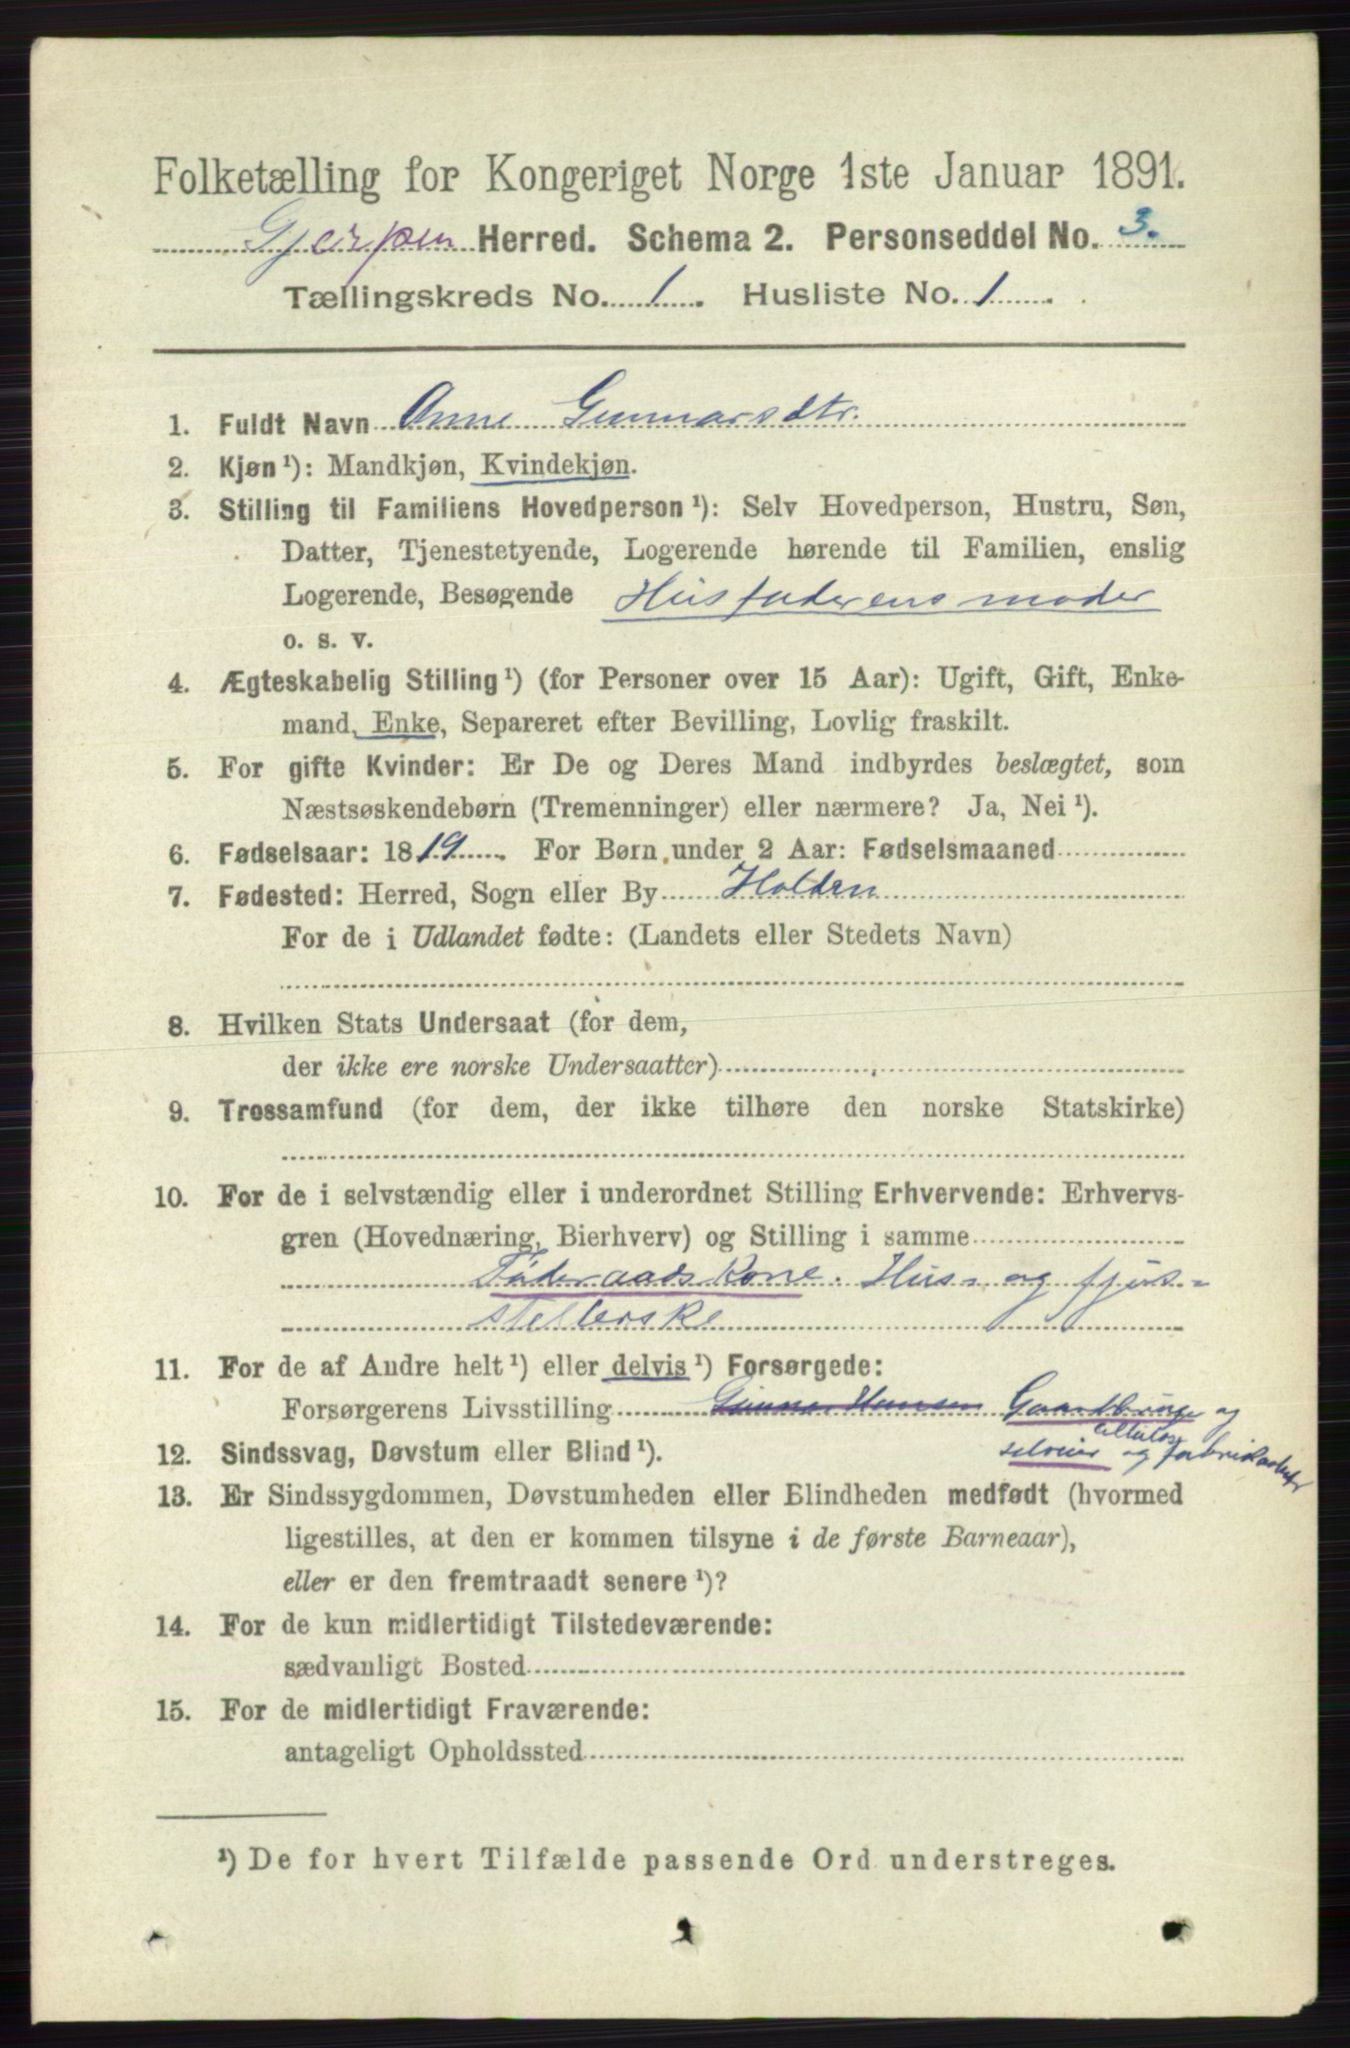 Folketælling for Kongeriget Norge 1ste Januar 1891.
Gjerpen Herred. Schema 2. Personseddel No. 3.
Tællingskreds No. 1. Husliste No. 1.
1. Fuldt Navn Anne Gunnarsdtr.
2. Kjøn ¹): Mandkjøn, Kvindekjøn.
3. Stilling til Familiens Hovedperson ¹): Selv Hovedperson, Hustru, Søn,
Datter, Tjenestetyende, Logerende hørende til Familien, enslig
Logerende, Besøgende Husfaderens moder
o. s. v.
4. Ægteskabelig Stilling ¹) (for Personer over 15 Aar): Ugift, Gift, Enke-
mand, Enke, Separeret efter Bevilling, Lovlig fraskilt.
5. For gifte Kvinder: Er De og Deres Mand indbyrdes beslægtet, som
Næstsøskendebørn (Tremenninger) eller nærmere? Ja, Nei ¹).
6. Fødselsaar: 1819. For Børn under 2 Aar: Fødselsmaaned
7. Fødested: Herred, Sogn eller By Holden
For de i Udlandet fødte: (Landets eller Stedets Navn)
8. Hvilken Stats Undersaat (for dem,
der ikke ere norske Undersaatter)
9. Trossamfund (for dem, der ikke tilhøre den norske Statskirke)
10. For de i selvstændig eller i underordnet Stilling Erhvervende: Erhvervs-
gren (Hovednæring, Bierhverv) og Stilling i samme
Føderaadskone. Hus- og fjøs-
stellerske
11. For de af Andre helt ¹) eller delvis ¹) Forsørgede:
Forsørgerens Livsstilling Gunnar Hansen Gaardbruger og
selveier og cellulosefabrikarbeider
12. Sindssvag, Døvstum eller Blind ¹).
13. Er Sindssygdommen, Døvstumheden eller Blindheden medfødt (hvormed
ligestilles, at den er kommen tilsyne i de første Barneaar),
eller er den fremtraadt senere ¹)?
14. For de kun midlertidigt Tilstedeværende:
sædvanligt Bosted
15. For de midlertidigt Fraværende:
antageligt Opholdssted
¹) De for hvert Tilfælde passende Ord understreges.